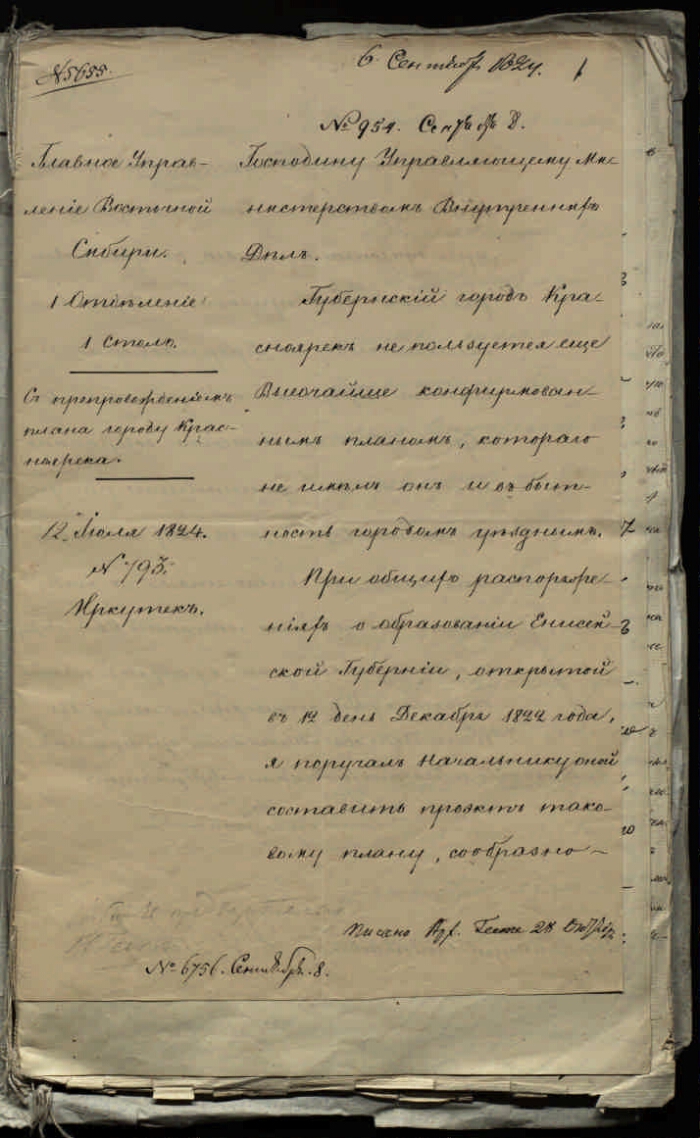 6 Сентябр 1824. 1
№5655.
№ 951. Сентября 8.
Главное Управ-
леніе Восточной
Сибири.
1 Отдѣленіе
1 Столъ.
Съ препровожденіемъ
плана городу Крас-
ноярска.
12 Іюля 1824.
№ 793.
Иркутскъ.
Господину Управляющему Ми-
нистерствомъ Внутреннихъ
Дѣлъ.
Губернскій городъ Кра-
сноярскъ не пользуется еще
Высочайше конфирмован-
нымъ планомъ, котораго
не имѣлъ онъ и въ быт-
ность городомъ уѣзднымъ.
При общихъ распоряже-
ніяхъ о образованіи Енисей-
ской Губерніи, открытой
въ 12 день Декабря 1822 года,
я поручалъ Начальнику оной
составить проэктъ тако-
вому плану, сообразно-
писано 28
№ 6756. Сентябрь. 8.